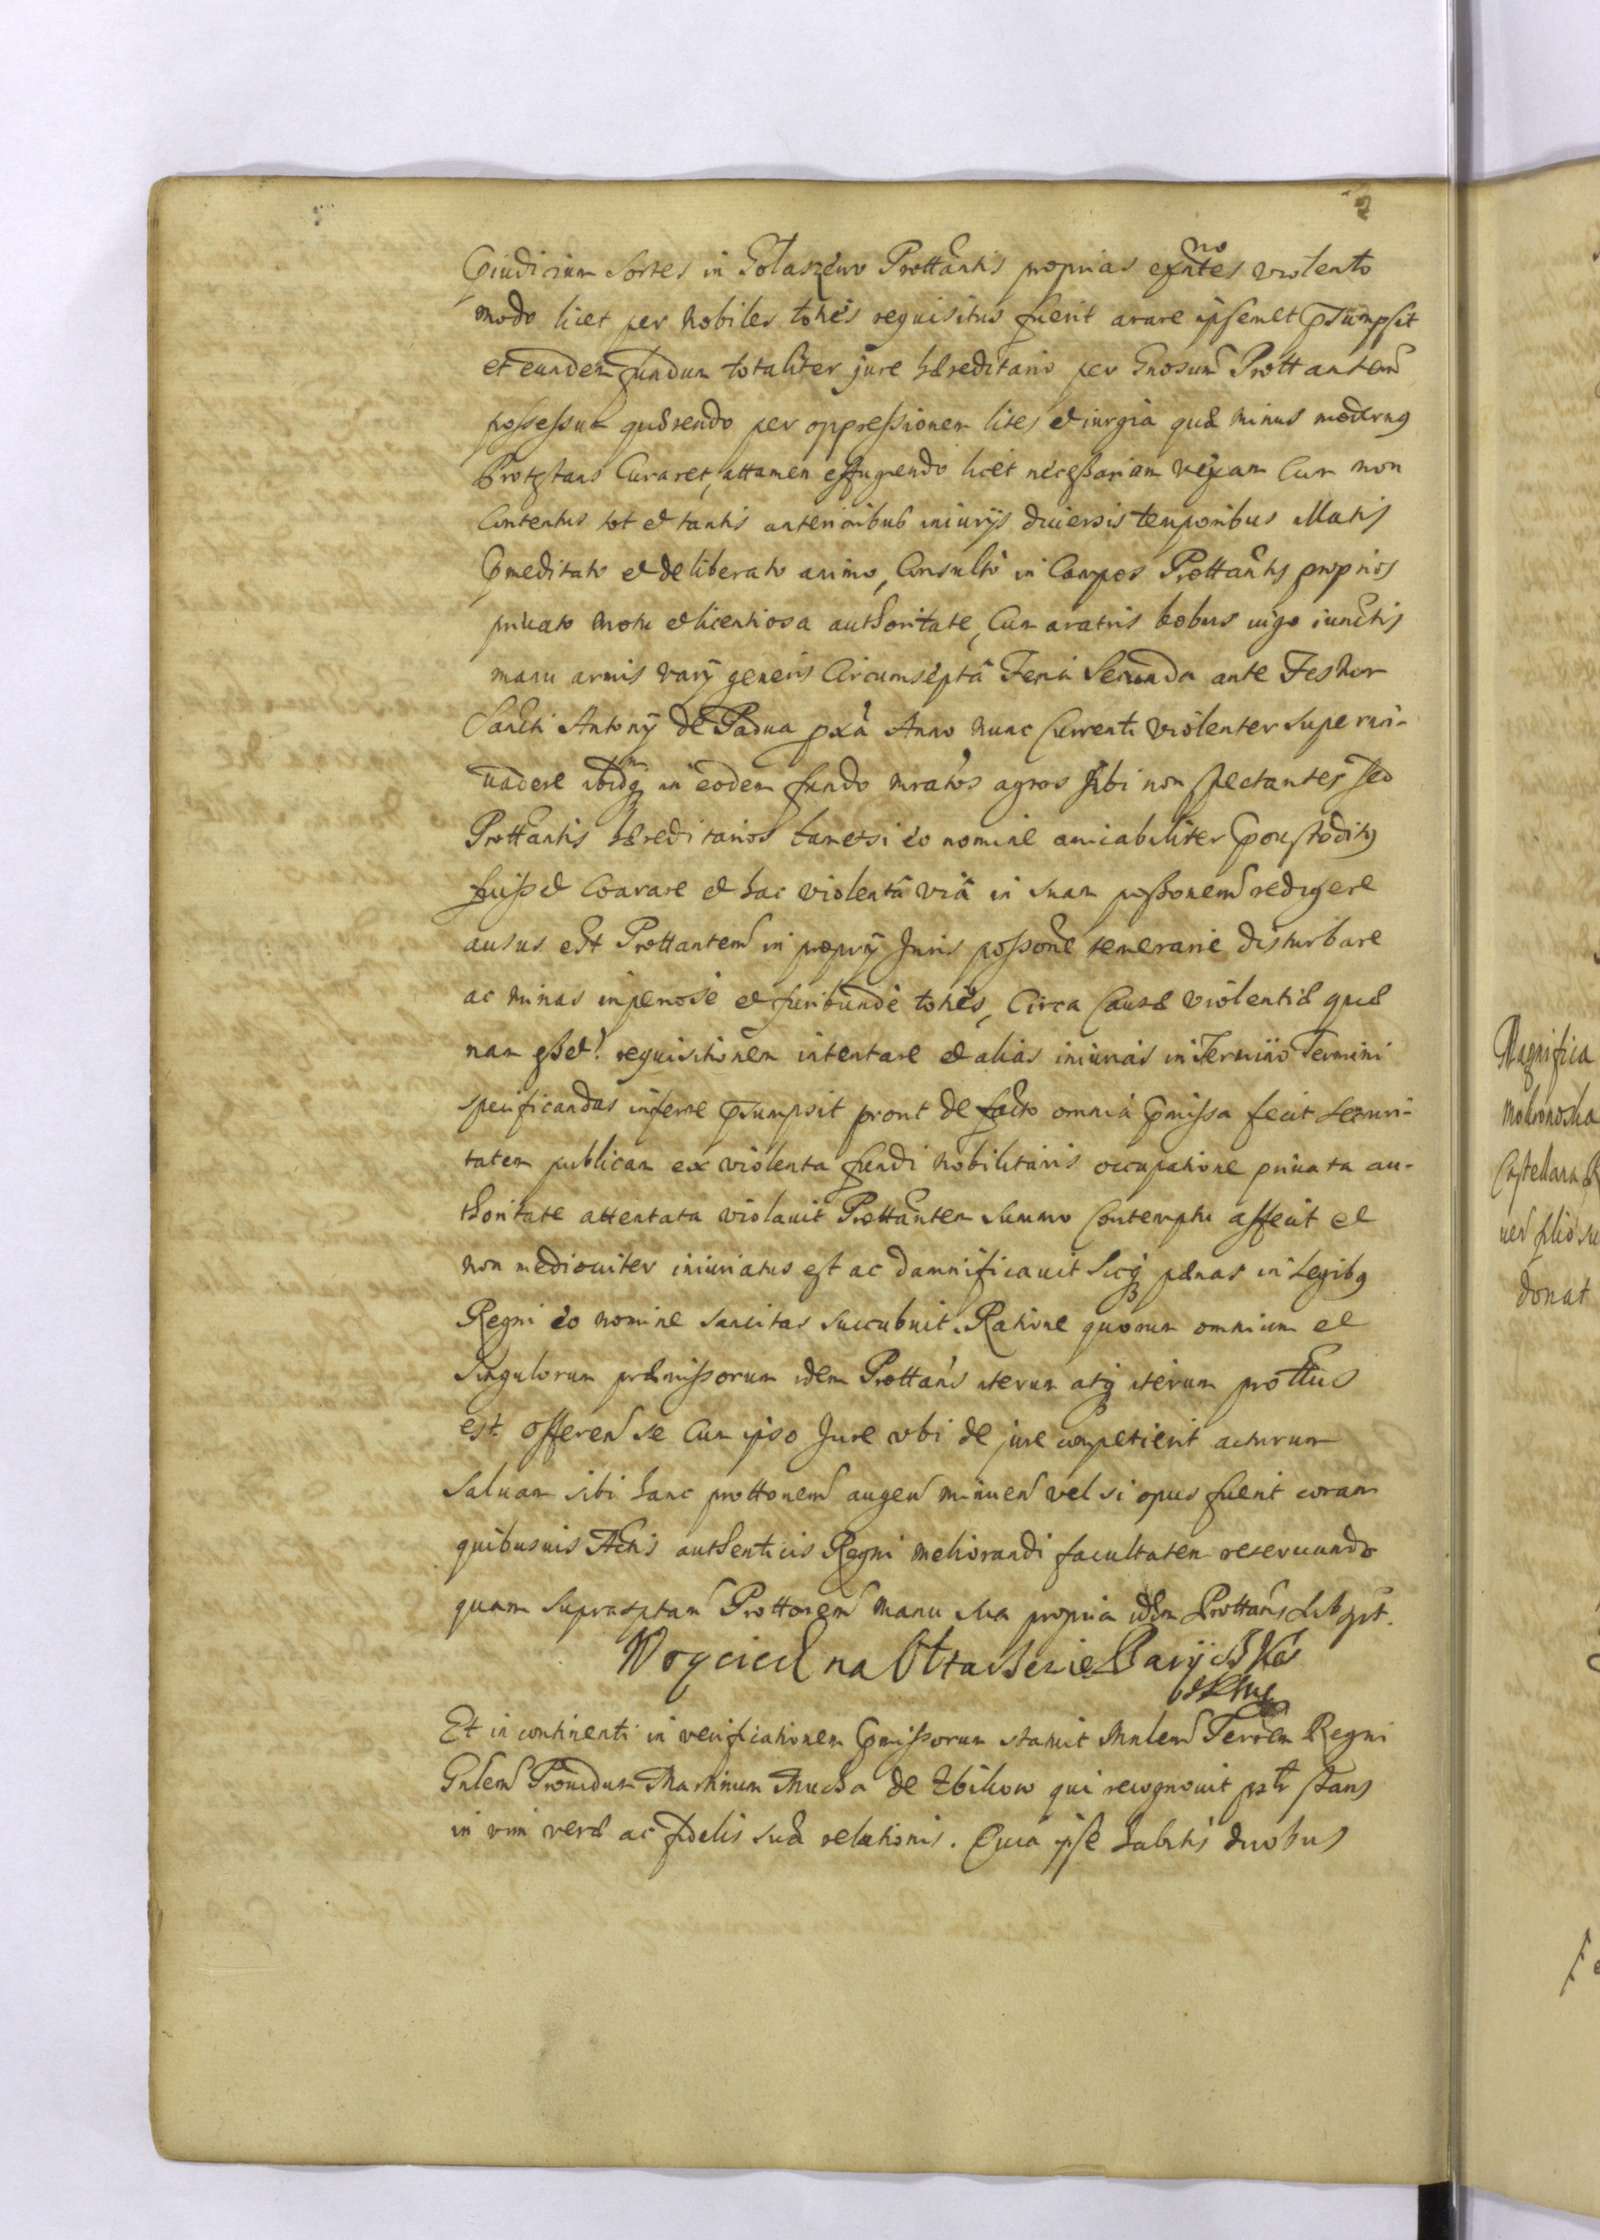 Ꝓiudicium sortes in Gołaszewo Prottantis proprias exntes violento
no
modo licet per Nobiles toties requisitus fuerit arare ipsemet ꝓsumpsit
et eundem fundum totaliter jure hæreditario per Gnosum Prottantem
possessum quærendo per oppressionem lites et iurgia quæ minus modernꝰ
Protestans Curaret, attamen effugiendo licet necessariam vexam Cum non
Contentus tot et tantis anterioribus iniurÿs diuersis temporibus illatis
Ꝓmeditato et deliberato animo, Consulto in Campos Prottantis proprios
priuato motu et licentiosa authoritate, Cum aratris bobus iugo iunctis
manu armis varÿ generis Circumsepta Feria Secunda ante Festum
Sancti Antonÿ de Padua pxa Anno nunc Currenti violenter superin-
uadere ibidq in eodem fundo nratos agros sibi non spectantes sed
Prottantis hæreditarios tametsi eo nomine amicabiliter
fuisset Coarare et hac violenta via in suam possonem redigere
ausus est Prottantem in proprÿ Juris possone temerarie disturbare
ac minas imperiose et furibunde toties, Circa Causæ violentiæ quæ
nam esset? requisitionem intentare et alias iniurias in Termino Termini
specificandas inferre ꝓsumpsit prout de facto omnia ꝓmissa fecit securi-
tatem publicam ex violenta fundi Nobilitaris occupatione priuata au-
thoritate attentata violauit Prottantem summo Contemptu affecit et
non mediocriter iniuriatus est ac damnificauit Sicq pænas in Legibꝰ
Regni eo nomine sancitas succubuit. Ratione quorum omnium et
singulorum præmissorum idem Prottans iterum atq iterum prottus
est offeren se Cum ipso Jure vbi de jure competierit acturum
Saluam sibi hanc prottonem augen minuen vel si opus fuerit coram
quibusuis Actis authenticis Regni meliorandi facultatem reseruando
quam suprascptam Prottonem manu sua propria idem Prottans subscrt.
Woyciech na Ołtarzewie
Et in continenti in verificationem ꝓmissorum statuit Mnlem Terrem Regni
Gnlem Prouidum Martinum Mucha de Zbikow qui recognouit pstr stans
in vim veræ ac fidelis suæ relationis. Quia ipse habitis duobus
Magnifica
Mokronoska
Castellana
donat